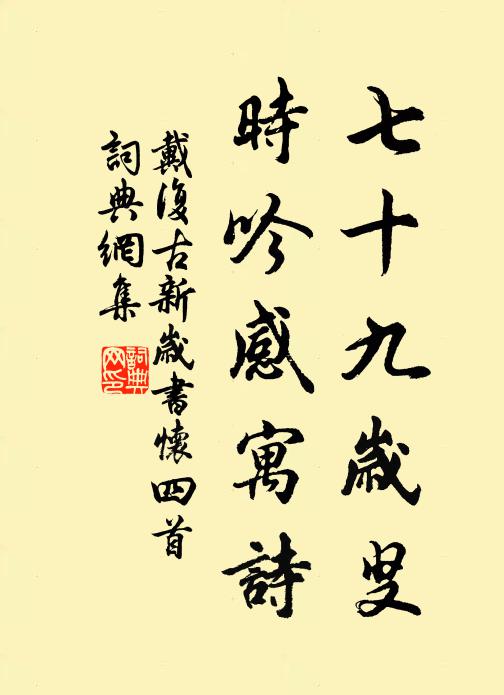 七十九歲叟
時吟感寓詩
戴復古新歲書懷四首
詞典網集
詞典網印